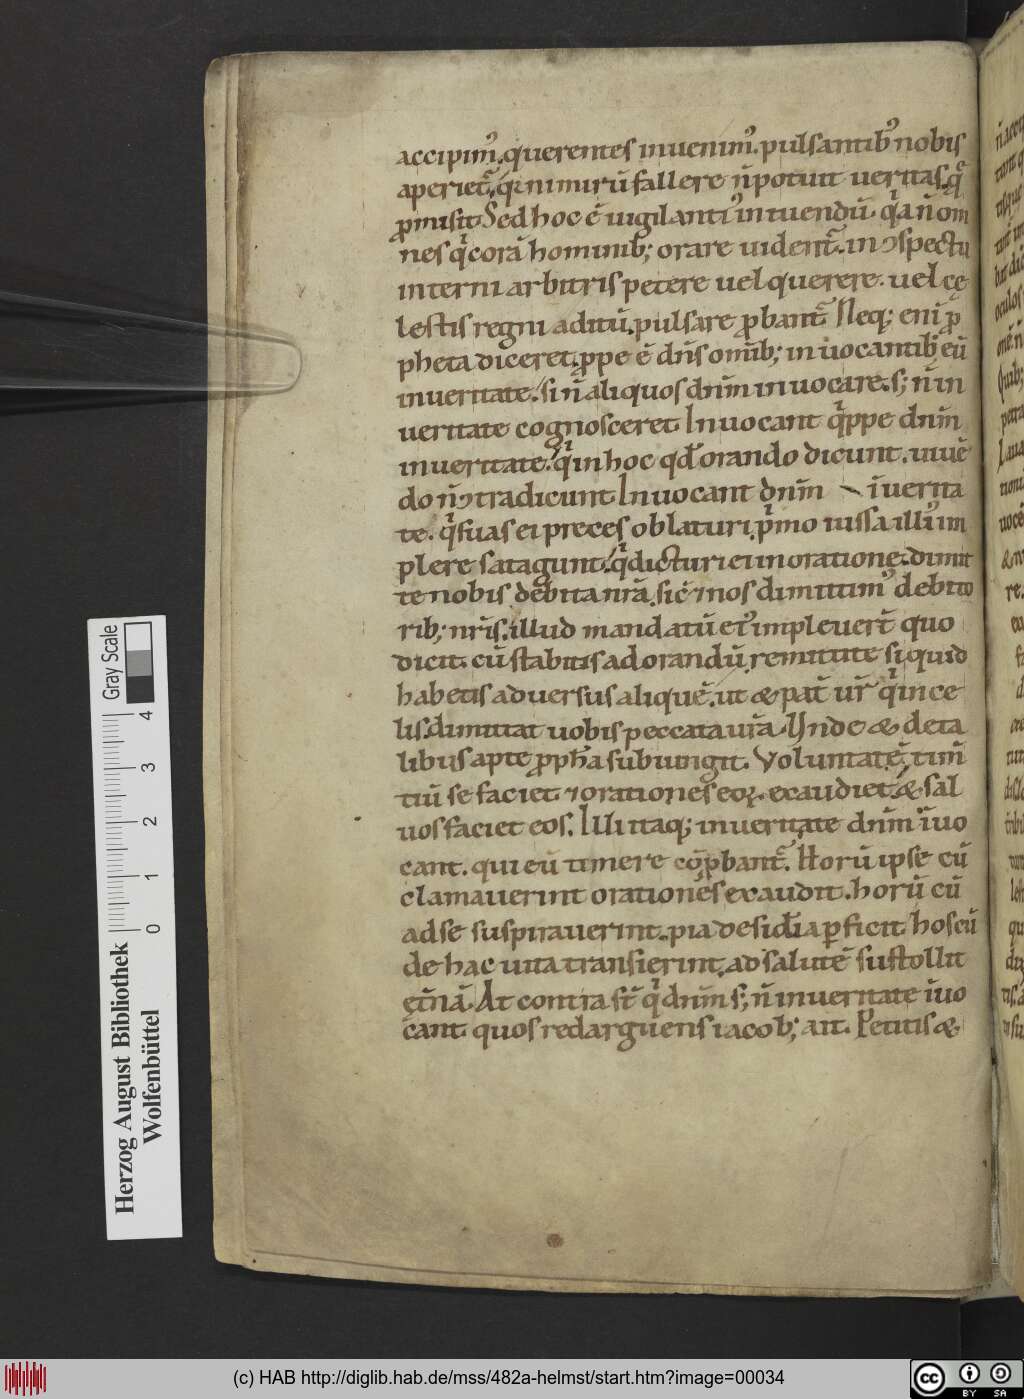 accipim᾽. querentes inuenim᾽. pulsantib᾽ nobis
aperiet᷑. q̅ nimirū fallere n̄ potuit ueritas. q̅
ꝓmisit. Sed hoc ē uigilanti᾽ intuendū. qͥa n̄ om
nes qͥ corā hominib; orare uident᷑. in ↄspectu
interni arbitris petere uel querere. uel cę
lestis regni aditū. pulsare ꝓbant᷑. Neq; enī ꝓ
pheta diceret. ꝓpe ē dn̄s omīb; inuocantib᾽ eū
in ueritate. si n̄ aliquos dn̄m inuocare. s; n̄ in
ueritate cognosceret. Inuocant qͥppe dn̄m
in ueritate. qͥ in hoc qđ orando dicunt. uiuē
do n̄ ↄtradicunt. Inuocant dn̄m ī uerita
te. qͥ suas ei preces oblaturi. pͥmo iussa illi᾽ im
plere satagunt. qͥ dicturi ei in oratione. dimit
te nobis debita nr̄a. sic̄ ⁊ nos dimittim᾽ debito
rib; nr̄is. illud mandatū ei᾽ impleuer̄t quo
dicit. cū stabitis ad orandū. remittite si quid
habetis aduersus aliquē. ut & pat̄ ur̄ qͥ in ce
lis. dimittat uobis peccata ur̄a. Unde & de ta
libus apte ꝓph̄a subiungit. Voluntatē tim̄
tiū se faciet ⁊ orationes eoꝝ. exaudiet. & sal
uos faciet eos. Illi itaq; in ueritate dn̄m īuo
cant. qui eū timere cōꝓbant᷑. Horū ipse cū
clamauerint orationes exaudit. horū cū
ad se suspirauerint. pia desid̄ia ꝑficit. hos cū
de hac uita transierint. ad salutē sustollit
ęt̄nā. At contra st̄ qͥ dn̄m s; n̄ in ueritate īuo
cant. quos redarguens iacob; ait. Petitis &
Gray Scale
4
3
2
1
0
Herzog August Bibliothek
Wolfenbüttel
(c) HAB http://diglib.hab.de/mss/482a-helmst/start.htm?image=00034
cc
BY SA